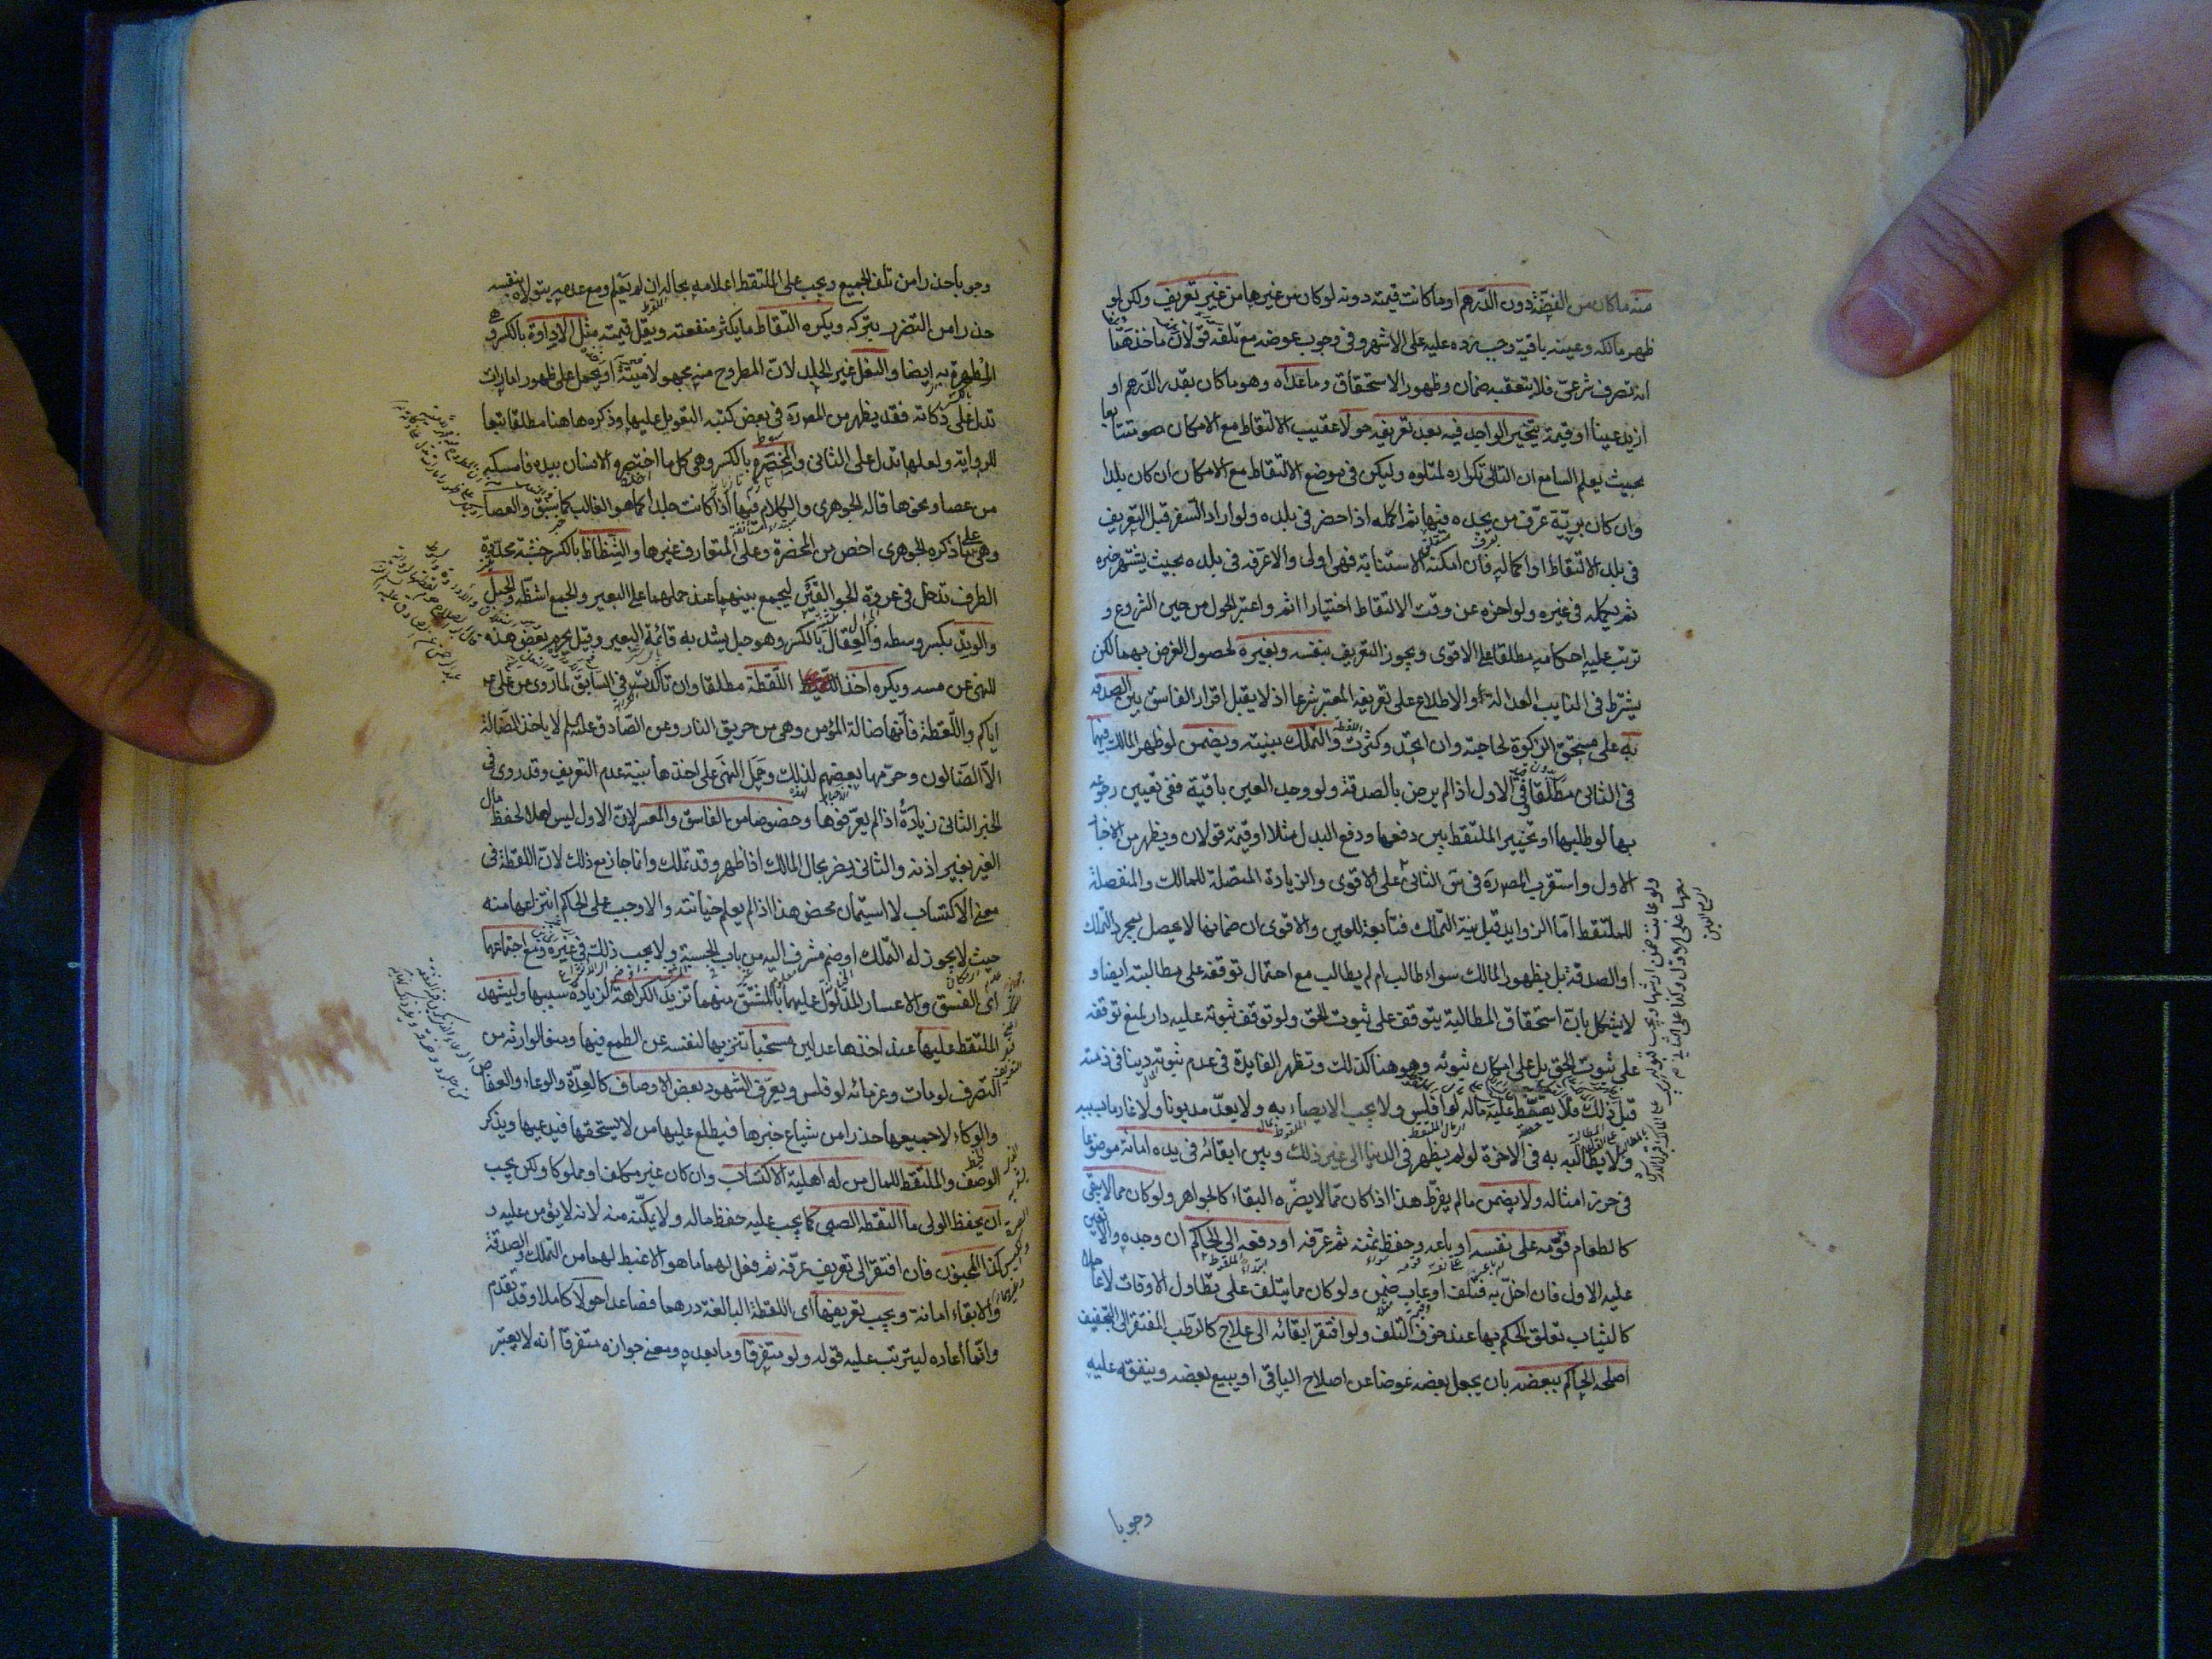 منه ما كان من الفضة دون الدرهم او ما كانت قيمته دونه لو كان من غيرها من غير تعريف ولكن لو
ظهر مالكه وعينه باقية وجب رده عليه على الاشهر وفى وجوب عوضه مع تلفه قولان ماخذهما
انه تصرف شرعى فلا يتعقبه ضمان وظهور الاستحقاق وما عداه وهو ما كان بقدر الدرهم او
ازيد عينا او قيمة يتخير الواجد فيه بعد تعريفه حولا عقيب الالتقاط مع الامكان متتابعا
بحيث يعلم السامع ان التالى تكرار لمتلوه وليكن فى موضع الالتقاط مع الامكان ان كان بلدا
وان كان برية عرف من يجده فيها ثم اكمله اذا حضر فى بلده ولو اراد السفر قبل التعريف
فى بلد الالتقاط او اكماله فان امكنه الاستنابة فهى اولى والا عرفه فى بلده بحيث يشتهر خبره
ثم يكمله فى غيره ولو اخره عن وقت الالتقاط اختيارا اثم واعتبر الحول من حين الشروع و
ترتب عليه احكامه مطلقا على الاقوى ويجوز التعريف بنفسه وبغيره لحصول الغرض بهما لكن
يشترط فى النايب العدالة والاطلاع على تعريفه المعتبر شرعا اذ لا يقبل اقرار الفاسق بين الصدقة
به على مستحق الزكوة لحاجته وان اتحد وكثرت والتملك بنيته ويضمن لو ظهر المالك فيهما
فى الثانى مطلقا وفى الاول اذا لم يرض بالصدقة ولو وجد العين باقية ففى تعيين رجوعه
بها لو طلبها او تخيير الملتقط بين دفعها ودفع البدل مثلا او قيمة قولان ويظهر من الاخبار
الاول واستقرب المصره فى س الثانى على الاقوى والزيادة المتصلة للمالك والمنفصلة
للملتقط اما الزوايد قبل نية التملك فتابعة للعين والاقوى ان ضمانها لا يحصل بمجرد التملك
او الصدقة بل بظهور المالك سواء طالب ام لم يطالب مع احتمال توقفه على مطالبته ايضا و
لا يشكل بان استحقاق المطالبة يتوقف على ثبوت الحق ولو توقف ثبوته عليه دار لمنع توقفه
على ثبوت الحق بل على امكان ثبوته وهو هنا كذلك وتظهر الفايدة فى عدم ثبوته دينا فى ذمته
قبل ذلك فلا يقسط عليه ماله لو افلس ولا يجب الايصاء به ولا يعد مديونا ولا غارما بسببه
ولا يطالبه به فى الاخرة لو لم يظهر فى الدنيا الى غير ذلك وبين ابقائه فى يده امانة موضوعا
فى حرز امثاله ولا يضمن ما لم يفرط هذا اذا كان مما لا يضره البقاء كالجواهر ولو كان مما لا يبقى
كالطعام قومه على نفسه او باعه وحفظ ثمنه ثم عرفه او دفعه الى الحاكم ان وجده والا تعين
عليه الاول فان اخل به فتلف او عاب ضمن ولو كان مما يتلف على تطاول الاوقات لا عاجلا
كالثياب تعلق الحكم بها عند خوف التلف ولو افتقر ابقائه الى علاج كالرطب المفتقر الى التجفيف
اصلحه الحاكم ببعضه بان يجعل بعضه عوضا عن اصلاح الباقى او يبيع بعضه وينفقه عليه
وجوبا
وجوبا حذرا من تلف الجميع ويجب على الملتقط اعلامه بحاله ان لم يعلم ومع عدمه يتولاه بنفسه
حذرا من التضرر بتركه ويكره التقاط ما يكثر منفعته ويقل قيمته مثل الاداوة بالكسر و
المطهرة به ايضا والنعل غير الجلد لان المطروح منه مجهولا ميتة او يحمل على ظهور امارات
تدل على ذكاته فقد يظهر من المصره فى بعض كتبه التعويل عليها وذكره هاهنا مطلقا تبعا
للرواية ولعلها تدل على الثانى والمخصرة بالكسر وهى كل ما اختصره الانسان بيده فامسكه
من عصا ونحوها قاله الجوهرى والكلام فيها اذا كانت جلدا كما هو الغالب كما سبق والعصا
وهى على ما ذكره الجوهرى اخص من المخصرة وعلى المتعارف غيرها والشظاظ بالكسر خشبة محددة
الطرف تدخل فى عروة الجوالقين ليجمع بينهما عند حملهما على البعير والجمع اشظة والحبل
والوتد بكسر وسطه والعقال بالكسر وهو حبل يشد به قائمة البعير وقيل يحرم بعض هذه
للنهى عن مسه ويكره اخذ اللقطة مطلقا وان تاكدت فى السابق لما روى عن على ع
اياكم واللقطة فانها ضالة المؤمن وهى من حريق النار وعن الصادق عليه السلم لا ياخذ الضالة
الا الضالون وحرمها بعضهم لذلك وحمل النهى على اخذها بنية عدم التعريف وقد روى فى
الخبر الثانى زيادة اذا لم يعرفوها وخصوصا من الفاسق والمعسر لان الاول ليس اهلا لحفظ مال
الغير بغير اذنه والثانى يضر بحال المالك اذا ظهر وقد تملك وانما جاز مع ذلك لان اللقطة فى
معنى الاكتساب لا استيمان محض هذا اذا لم يعلم خيانته والا وجب على الحاكم انتزاعها منه
حيث لا يجوز له التملك او ضم مشرف اليه من باب الحسبة ولا يجب ذلك فى غيره ومع اجتماعهما
اى الفسق والاعسار المدلول عليهما بالمشتق منهما تزيد الكراهة لزيادة سببها وليشهد
الملتقط عليها عند اخذها عدلين مستحبا تنزيها لنفسه عن الطمع فيها ومنعا لوارثه من
التصرف لو مات وغرمائه لو فلس ويعرف الشهود بعض الاوصاف كالعدة والوعاء والعفاص
والوكاء لا جميعها حذرا من شياع خبرها فيطلع عليها من لا يستحقها فيدعيها ويذكر
الوصف والملتقط للمال من له اهلية الاكتساب وان كان غير مكلف او مملوكا ولكن يجب
ان يحفظ الولى ما التقطه الصبى كما يجب عليه حفظ ماله ولا يمكنه منه لانه لا يؤمن عليه و
كذا المجنون فان افتقر الى تعريف عرفه ثم فعل لهما ما هو الاغبط لهما من التملك والصدقة
والابقاء امانة ويجب تعريفها اى اللقطة البالغة درهما فصاعدا حولا كاملا وقد تقدم
وانما اعاده ليترتب عليه قوله ولو متفرقا وما بعده ومعنى جوازه متفرقا انه لا يعتبر